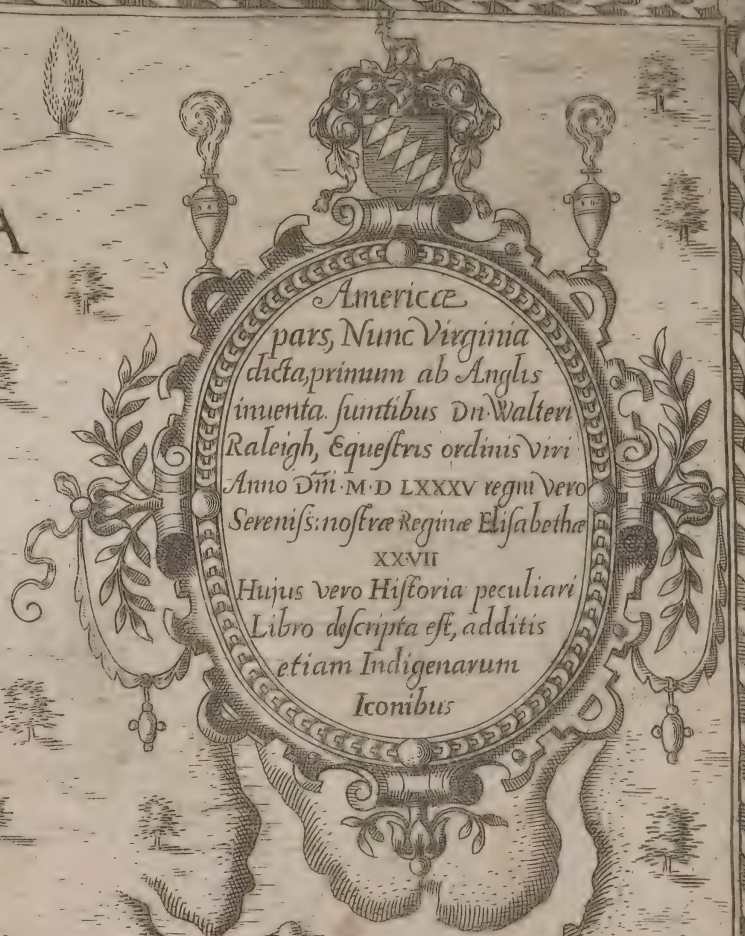 A
Americæ
pars, Nunc Virginia
dicta, primum ab Anglis
inuenta. ſumtibus Dn. Walteri
Raleigh, Equeſtris ordinis Viri
Anno Dm̃i. M. D LXXXV regni Vero
Sereniſſ: noſtræ Reginæ Eliſabethæ
XXVII
Hujus vero Hiſtoria peculiari
Libro deſcripta eſt, additis
etiam Indigenarum
Iconibus